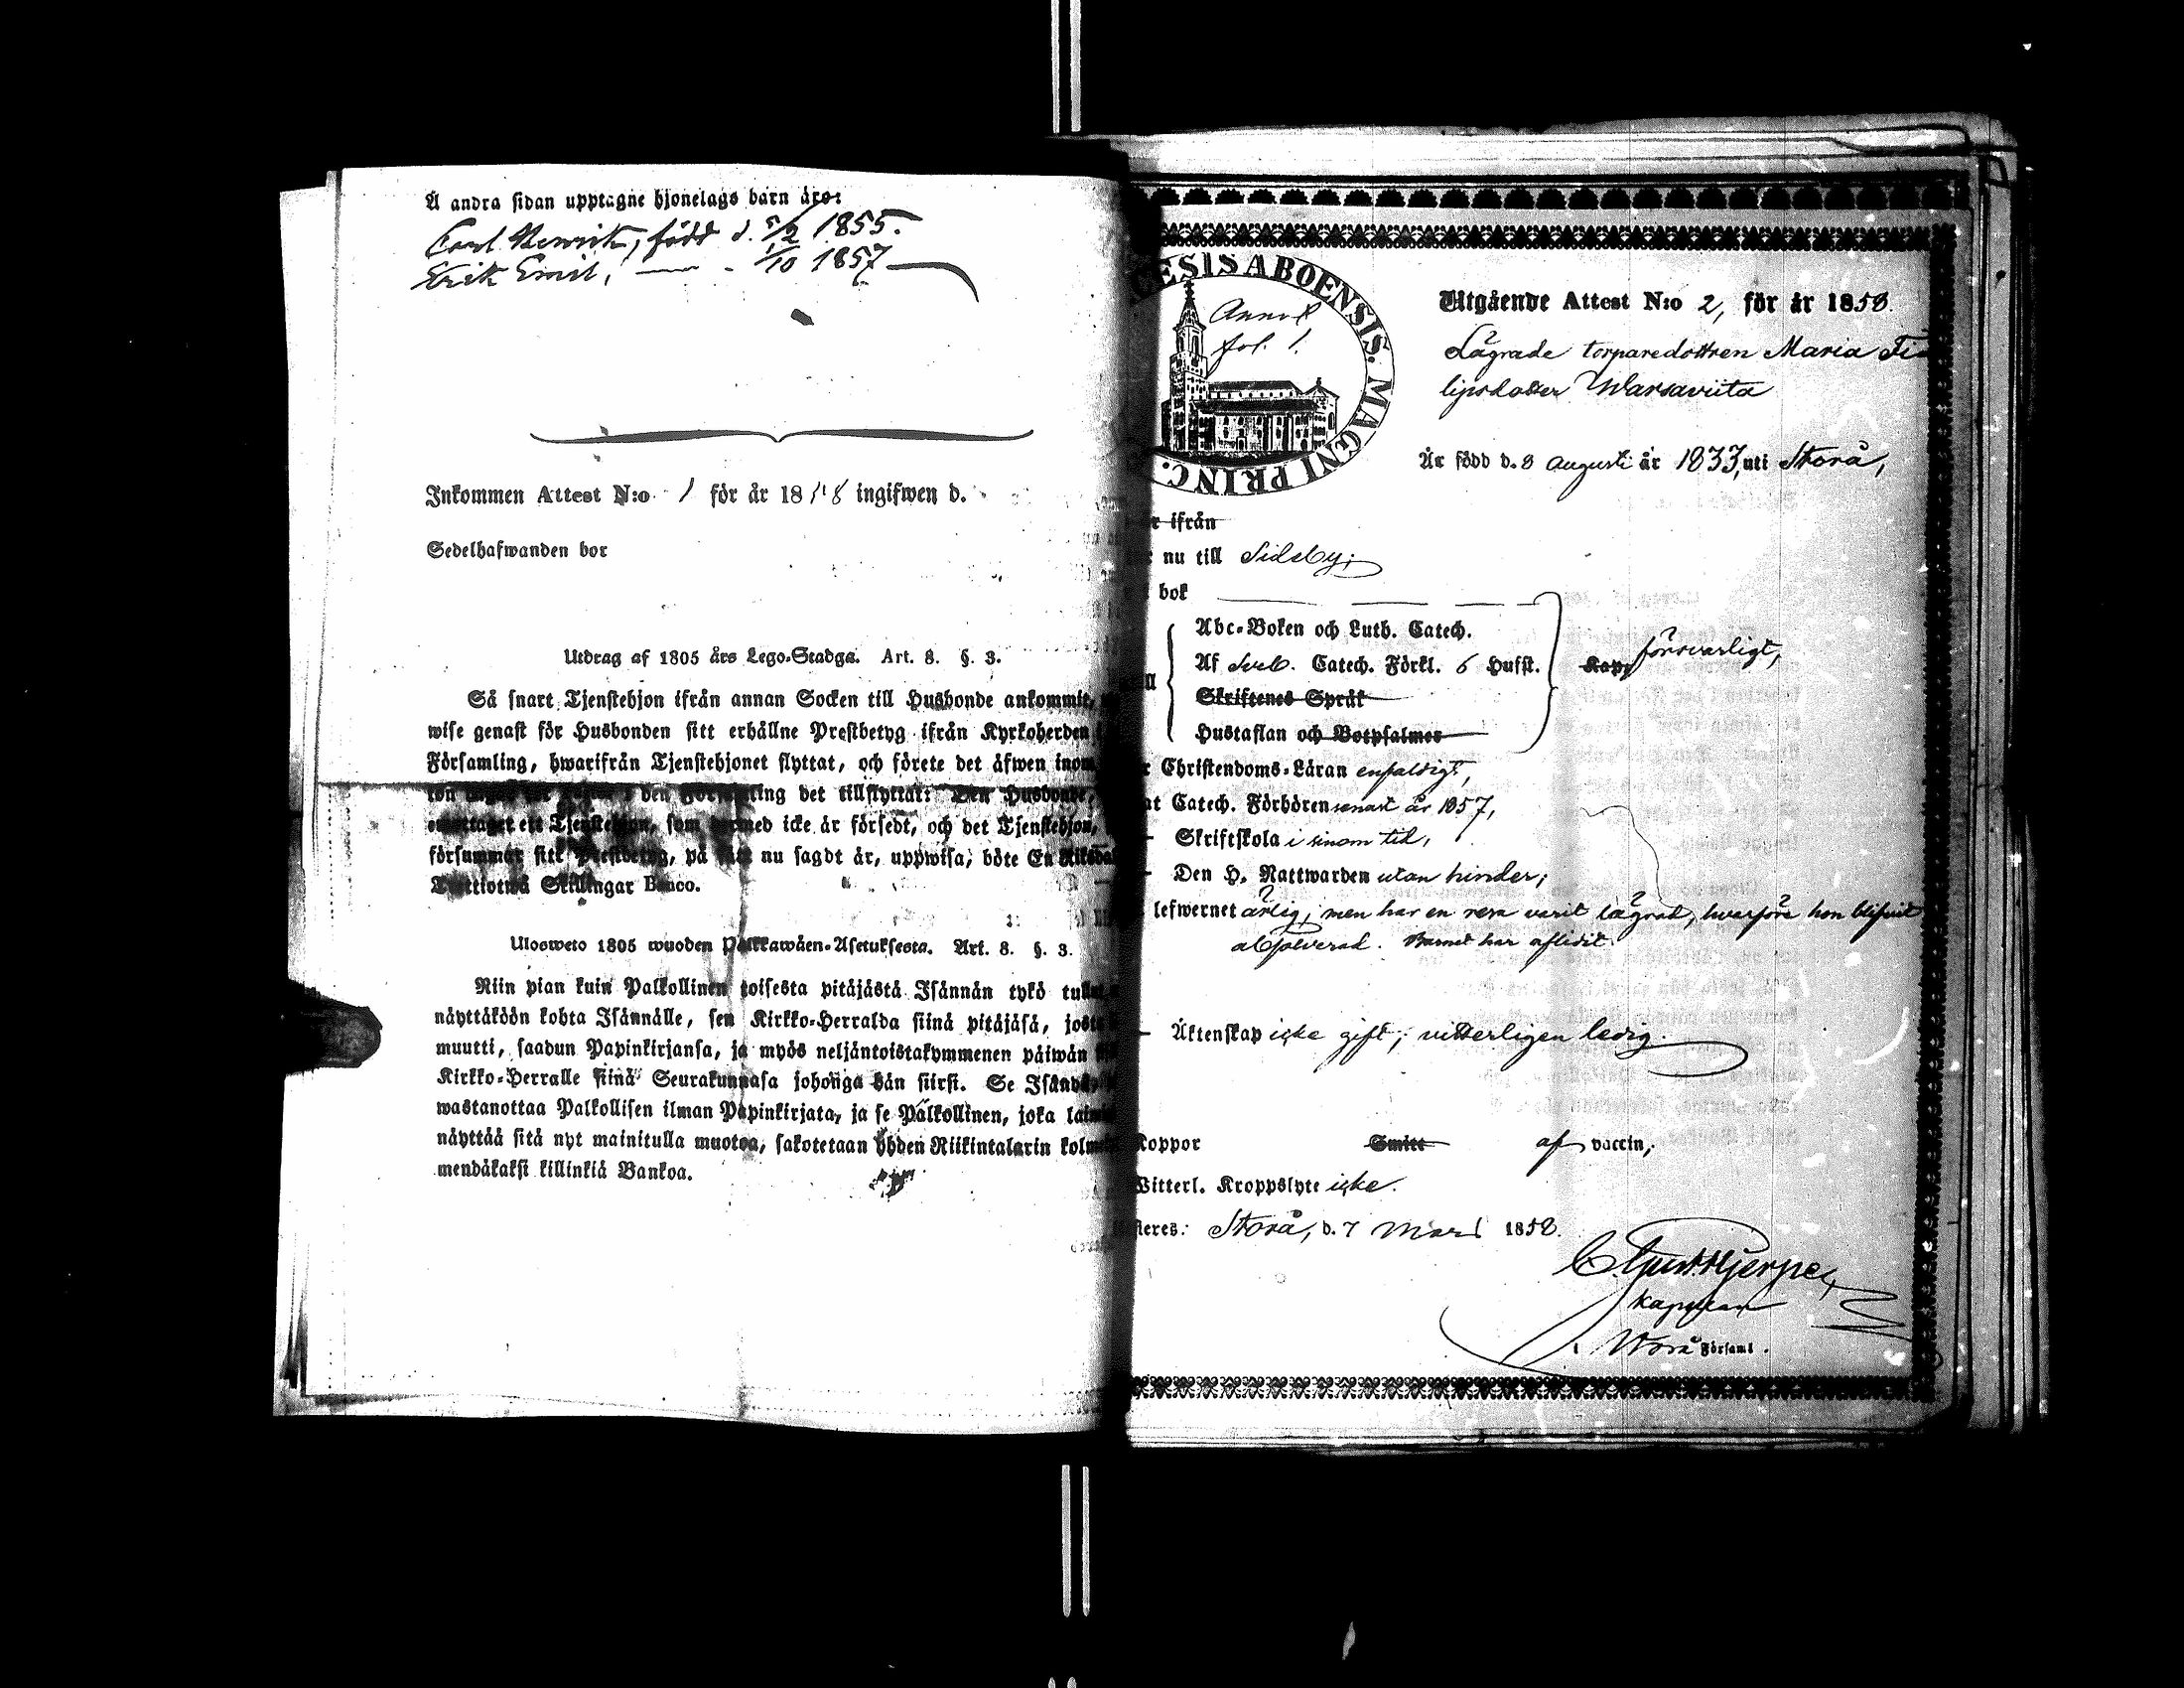 Å andra sidan upptagne hjonelags barn äro:
Carl Henrik, född d. 5/2 1855.
Erik Emil, — - 1/10 1857
Inkommen Attest N:o 1 för år 1858 ingifwen d.
Sedelhafwanden bor
Utdrag af 1805 års Lego-Stadga. Art. 8. §. 3.
Så snart Tjenstehjon ifrån annan Socken till Husbonde ankommit,
wise genast för Husbonden sitt erhållne Prestbetyg ifrån Kyrkoherden
Församling, hwarifrån Tjenstehjonet flyttat, och förete det äfwen inom
den Församling det tillflyttat: Den Husbonde,
emottaget ett Tjenstehjon, som dermed icke är försedt, och det Tjenstehjon,
försummar sitt Prestbetyg, på sätt nu sagdt är, uppwisa, böte En Riksdal
Trettiotwå Skillingar Banco.
Ulosweto 1805 wuoden Palkkawäen-Asetuksesta. Art. 8. §. 3.
Niin pian kuin Palkollinen toisesta pitäjästä Isännän tykö tullut
näyttäköön kohta Isännälle, sen Kirkko-Herralda siinä pitäjäsä, josta
muutti, saadun Papinkirjansa, ja myös neljäntoistakymmenen päiwän
Kirkko-Herralle siinä Seurakunnasa johonga hän siirsi. Se Isändä,
wastanottaa Palkollisen ilman Papinkirjata, ja se Palkollinen, joka
näyttää sitä nyt mainitulla muotoa, sakotetaan yhden Riikintalarin
mendäkaksi killinkiä Bankoa.
CESIS ABOENSIS. MAGNI PRINC.
fol. 1.
Utgående Attest N:o 2, för år 1858.
Lägrade torparedottren Maria Fi
lipsdotter Warsaviita
Är född d. 8 augusti år 1833, uti Storå,
ifrån
nu till Sideby;
bok
Abc-Boken och Luth. Catech.
Af Sveb. Catech. Förkl. 6 Hufst. försvarligt,
Skriftenes Språk
Hustaflan och Botpsalmer
Christendoms-Läran enfaldigt,
at Catech. Förhören senast år 1857,
Skriftskola i sinom tid,
Den H. Nattwarden utan hinder;
lefwernet ärlig, men har en resa varit lägrad, hvarföre hon blifvit
absolverad. Barnet har aflidit.
Äktenskap icke gift; vitterligen ledig.
Koppor Smitt af vaccin,
Witterl. Kroppslyte icke.
Storå, d. 7 Mars 1858.
Hjerpe,
kapellan
i Storå Församl.